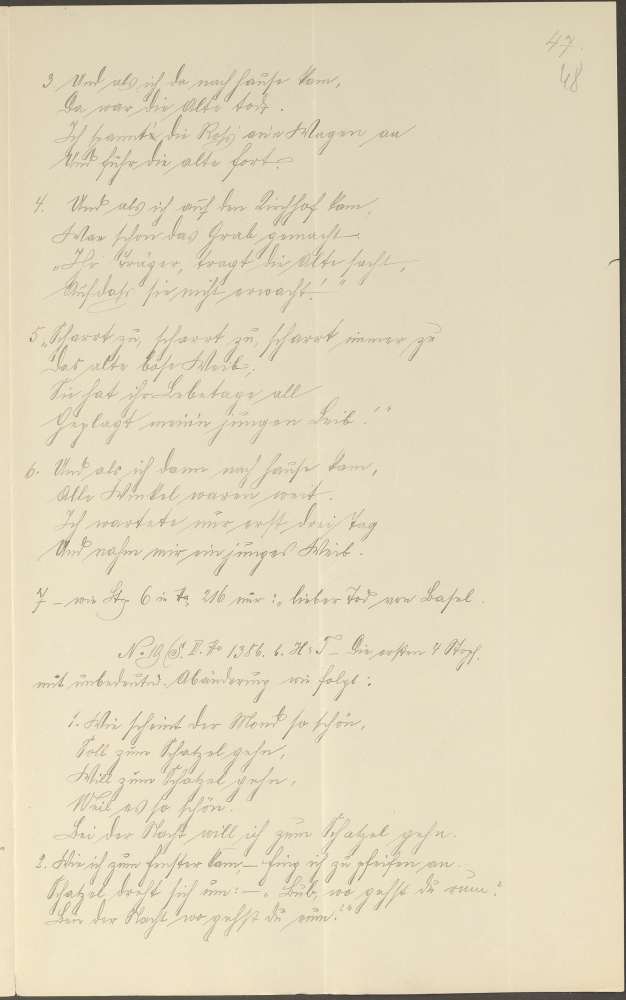 47.
48
3. Und als ich da nach Hause kam,
Da war die Alte tot.
Ich spannt die Roß an'n Wagen an
Und fuhr die alte fort.
4. Und als ich auf den Kirchhof kam,
War schon das Grab gemacht.
"Ihr Träger, tragt die Alte sacht,
Aufdaß sie nicht erwacht!"
5. "Scharrt zu, scharrt zu, scharrt immer zu
Das alte böse Weib,
Sie hat ihr Lebetage all
Geplagt mein'n jungen Leib!"
6. Und als ich dann nach Hause kam,
Alle Winkel waren weit.
Ich wartete nur erst drei Tag
Und nahm mir ein junges Weib.
7 – wie Str. 6 in 216 nur: lieber Tod von Basel.
No 19 (S. II. No 1386. 6. H: T – Die ersten 4 Stroph.
mit unbedeutd. Abänderung wie folgt:
1. Wie scheint der Mond so schön,
Soll zum Schatzel gehn,
Will zum Schatzel gehn,
Weil es so schön.
Bei der Nacht will ich zum Schatzel gehn.
2. Wie ich zum Fenster kam – fing ich zu pfeifen an.
Schatzel dreht sich um: – "Bub, wo gehst du rum?
Bei der Nacht wo gehst du rum?"